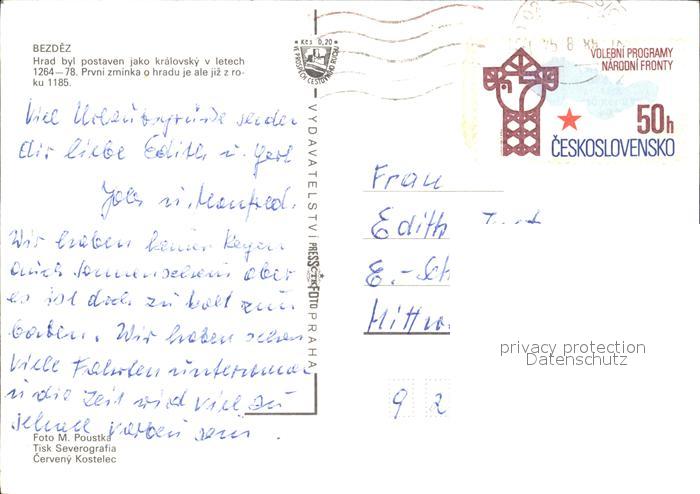 BEZDĚZ
Hrad byl postaven jako královský v letech
1264—78. První zmínka o hradu je ale již z ro-
ku 1185.
Viel Urlaubsgrüße senden
dir liebe Edith u. Gert
u. Manfred.
Wir haben keinen Regen
auch Sonnenschein aber
es ist doch zu kalt zum
baden. Wir haben schon
viele Fahrten unternommen
u die Zeit wird viel zu
schnell vorbei sein.
Foto M. Poustka
Tisk Severografia
Červený Kostelec
Kčs 0,20
VYDAVATELSTVÍ PRESSFOTO PRAHA
VOLEBNÍ PROGRAMY
NÁRODNÍ FRONTY
50h
ČESKOSLOVENSKO
Frau
Edith
E.-
92
privacy protection
Datenschutz